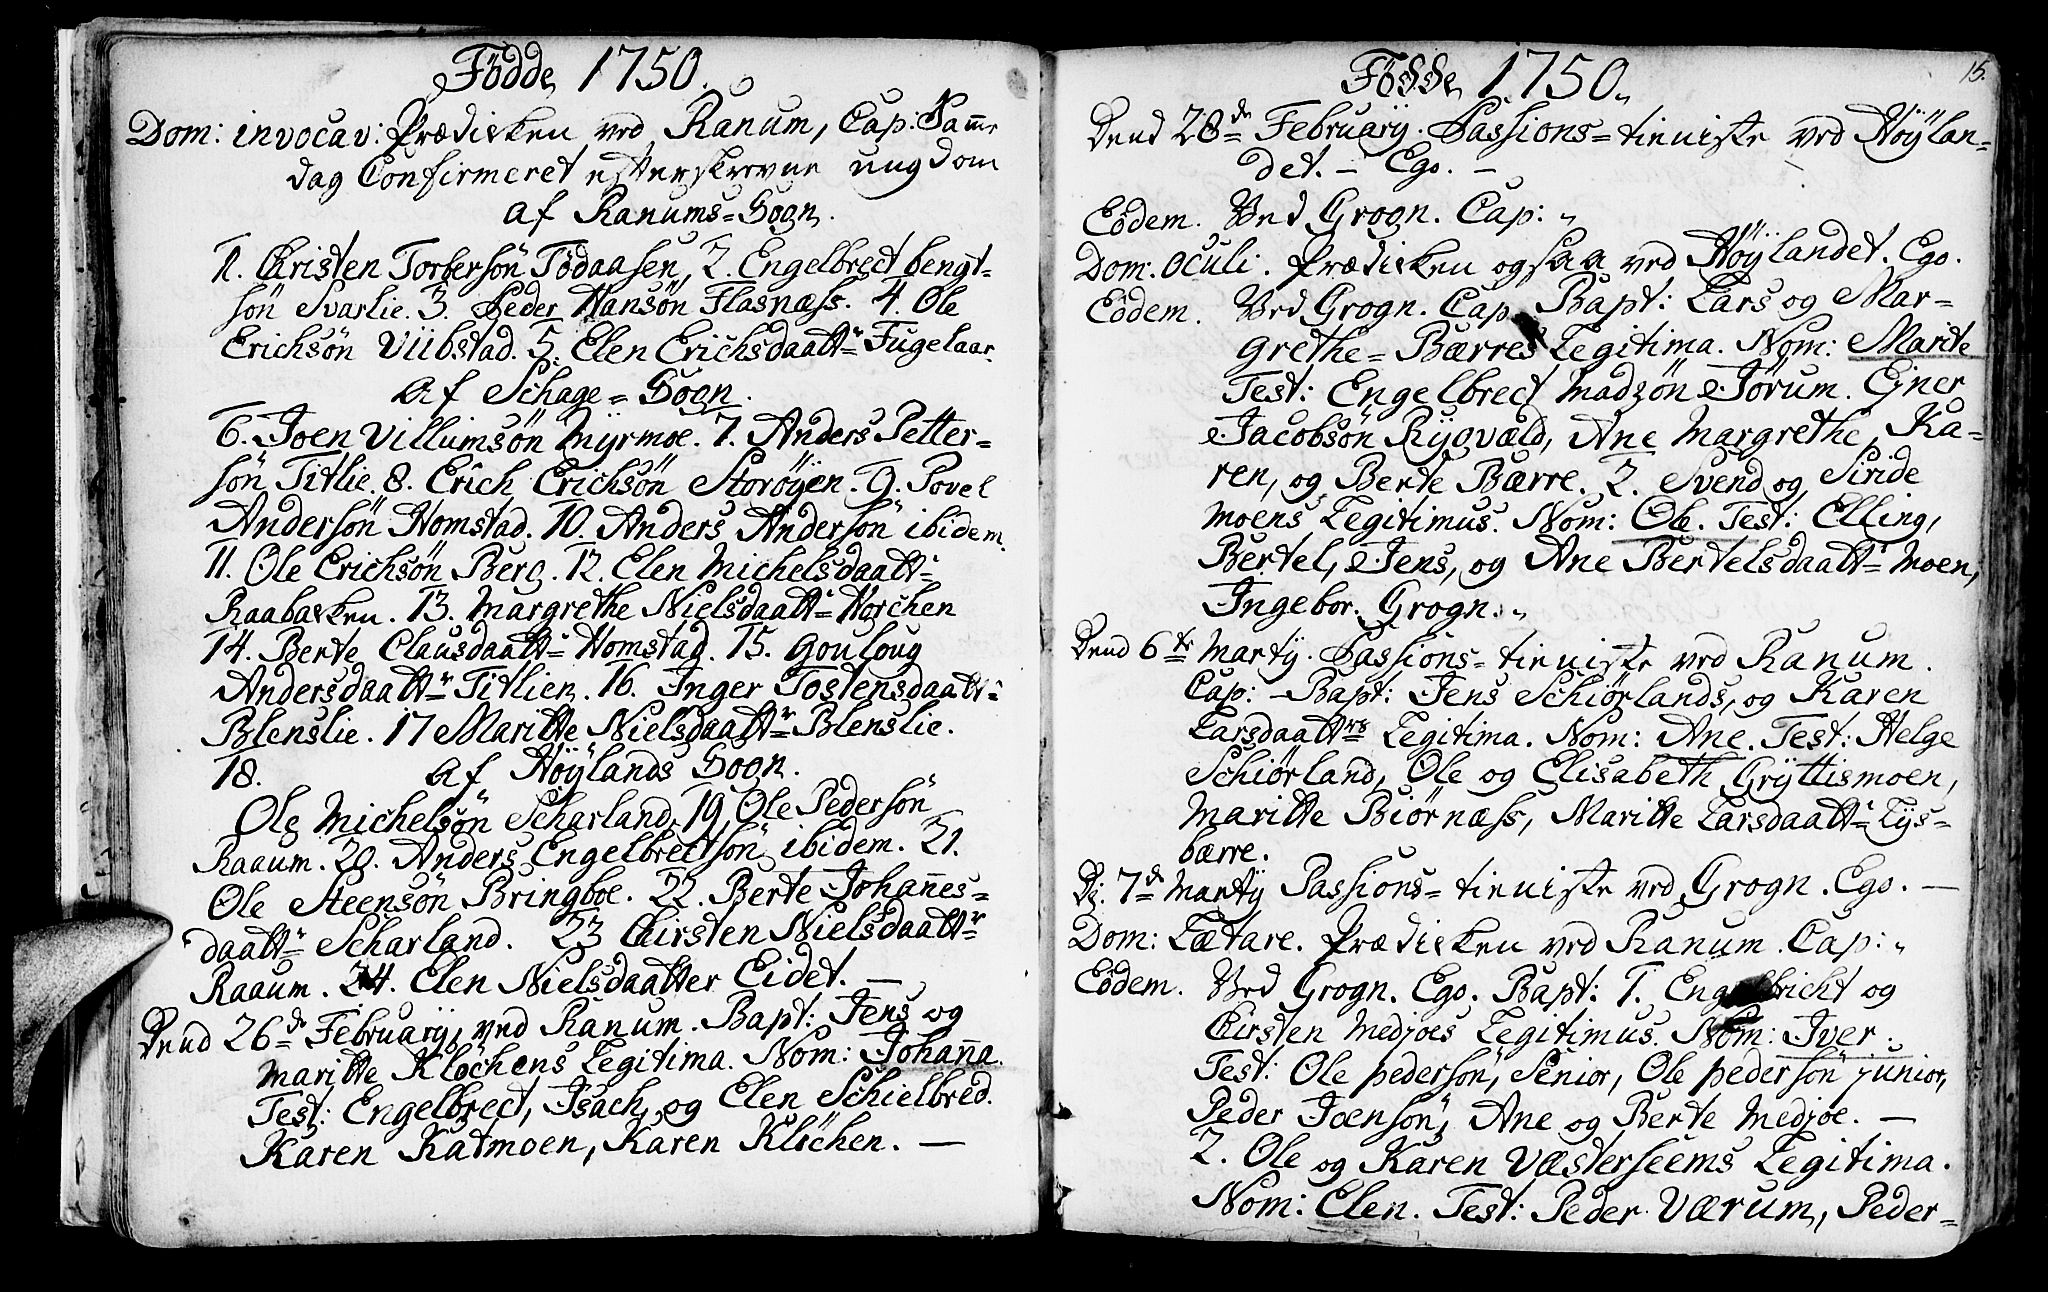 Födde 1750.
Dom: invocav: Prædicken ved Ranum, Cap: Samme
dag Confirmeret efterskrevne ungdom
af Ranums=Sogn.
1. Christen Torbersön Födaasen, 2. Engelbrect bengt=
sön Svarlie. 3. Peder Hansön Flasnæss. 4. Ole
Erichsön Viibstad. 5. Elen Erichsdaattr Fugelaar.
af Schage=Sogn.
6. Joen Villumsön Myrmoe. 7. Anders Petter=
sön Titlie. 8. Erich Erichsön Storöyen. 9. Povel
Andersön Homstad. 10. Anders Andersön ibidem.
11. Ole Erichsön Berg. 12. Elen Michelsdaattr
Raabacken. 13. Margrethe Nielsdaattr Horchen
14. Berte Clausdaattr Homstad. 15. Gouloug
Andersdaattr Titlien. 16. Inger Tostensdaattr
Blenslie. 17 Maritte Nielsdaattr Blenslie.
18. af Höylands Sogn.
Ole Michelsön Scharland. 19. Ole Pedersön
Raaum. 20. Anders Engelbrectsön ibidem. 21.
Ole Steensön Bringboe. 22. Berte Johannes=
daattr Scharland. 23 Chirsten Nielsdaattr
Raaum. 24. Elen Nielsdaatter Eidet. —
Dend 26de February, ved Ranum. Bapt: Jens og
Maritte Klöchens Legitima. Nom: Johanna.
Test: Engelbrect, Isach, og Elen Schielbred.
Karen Katmoen, Karen Klöchen. —
Födde 1750.
15.
Dend 28de February. Passions=tieniste ved Höylan=
det. — Ego. —
Eödem. Ved Grogn. Cap:
Dom: Oculi. Prædicken ogsaa ved Höylandet. Ego.
Eödem. Ved Grogn. Cap. Bapt: Lars og Mar=
grethe=Bærres Legitima. Nom: Marite
Test: Engelbrect Madzön Jörum. Ejner
Jacobsön Rygvald, Ane Margrethe, Ka=
ren, og Berte Bærre. 2. Svend og Siride
Moens Legitimus. Nom: Ole. Test: Elling,
Bertel, Jens, og Ane Bertelsdaattr Moen,
Ingebor. Grogn.
Dend 6te Martij. Passions=tieniste ved Ranum.
Cap: — Bapt: Jens Schiörlands, og Karen
Larsdaattrs Legitima. Nom: Ane. Test: Helge
Schiörland, Ole og Elisabeth Gryttismoen,
Maritte Biörnæss, Maritte Larsdaattr Lys=
bærre.
Dj. 7de Martij Passions=tieniste ved Grogn. Ego. —
Dom: Lætare. Prædicken ved Ranum. Cap:
Eödem. Ved Grogn. Ego. Bapt: 1. Engelbricht og
Chirsten Medjoes Legitimus. Nom: Iver.
Test: Ole pedersön, Senior, Ole pedersön junior,
Peder Joensön, Ane og Berte Medjoe. —
2. Ole og Karen Væsterseems Legitima.
Nom: Elen. Test: Peder Værum, Peder=